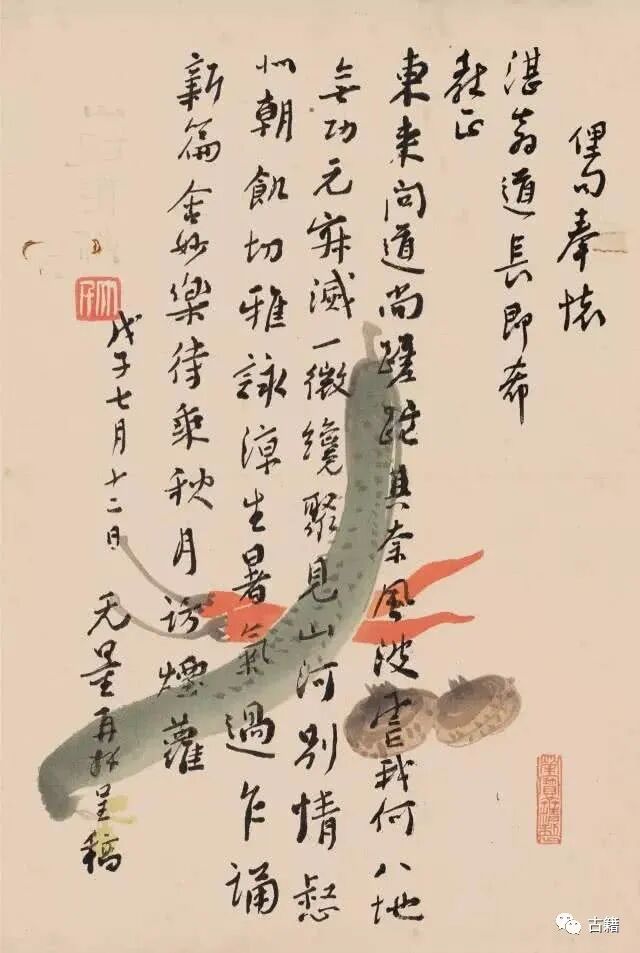 俚句奉懷
湛翁道長即希
教正
東来問道尚蹉跎其奈風波我何八地
無功元寂滅一微纔聚見山河別情惄
朝飢切雅詠涼生暑氣過乍誦
新篇含妙樂待乘秋月訪煙蘿
戊子七月十二日 无量再拜呈稿
古籍